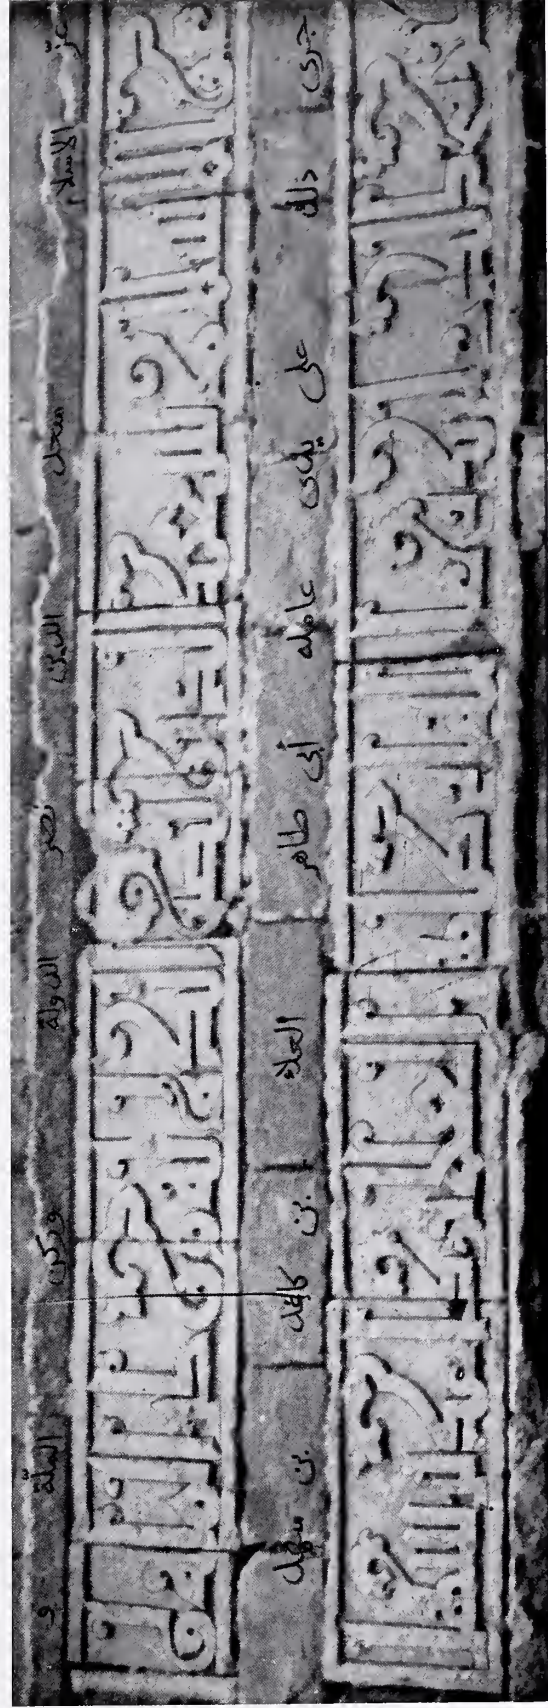 عزّ الاسلام سعد الدين نصر الدولة وركن الملّة و
جرى ذلك على يدى عامله أبى طاهر العلاء بن بن سهل